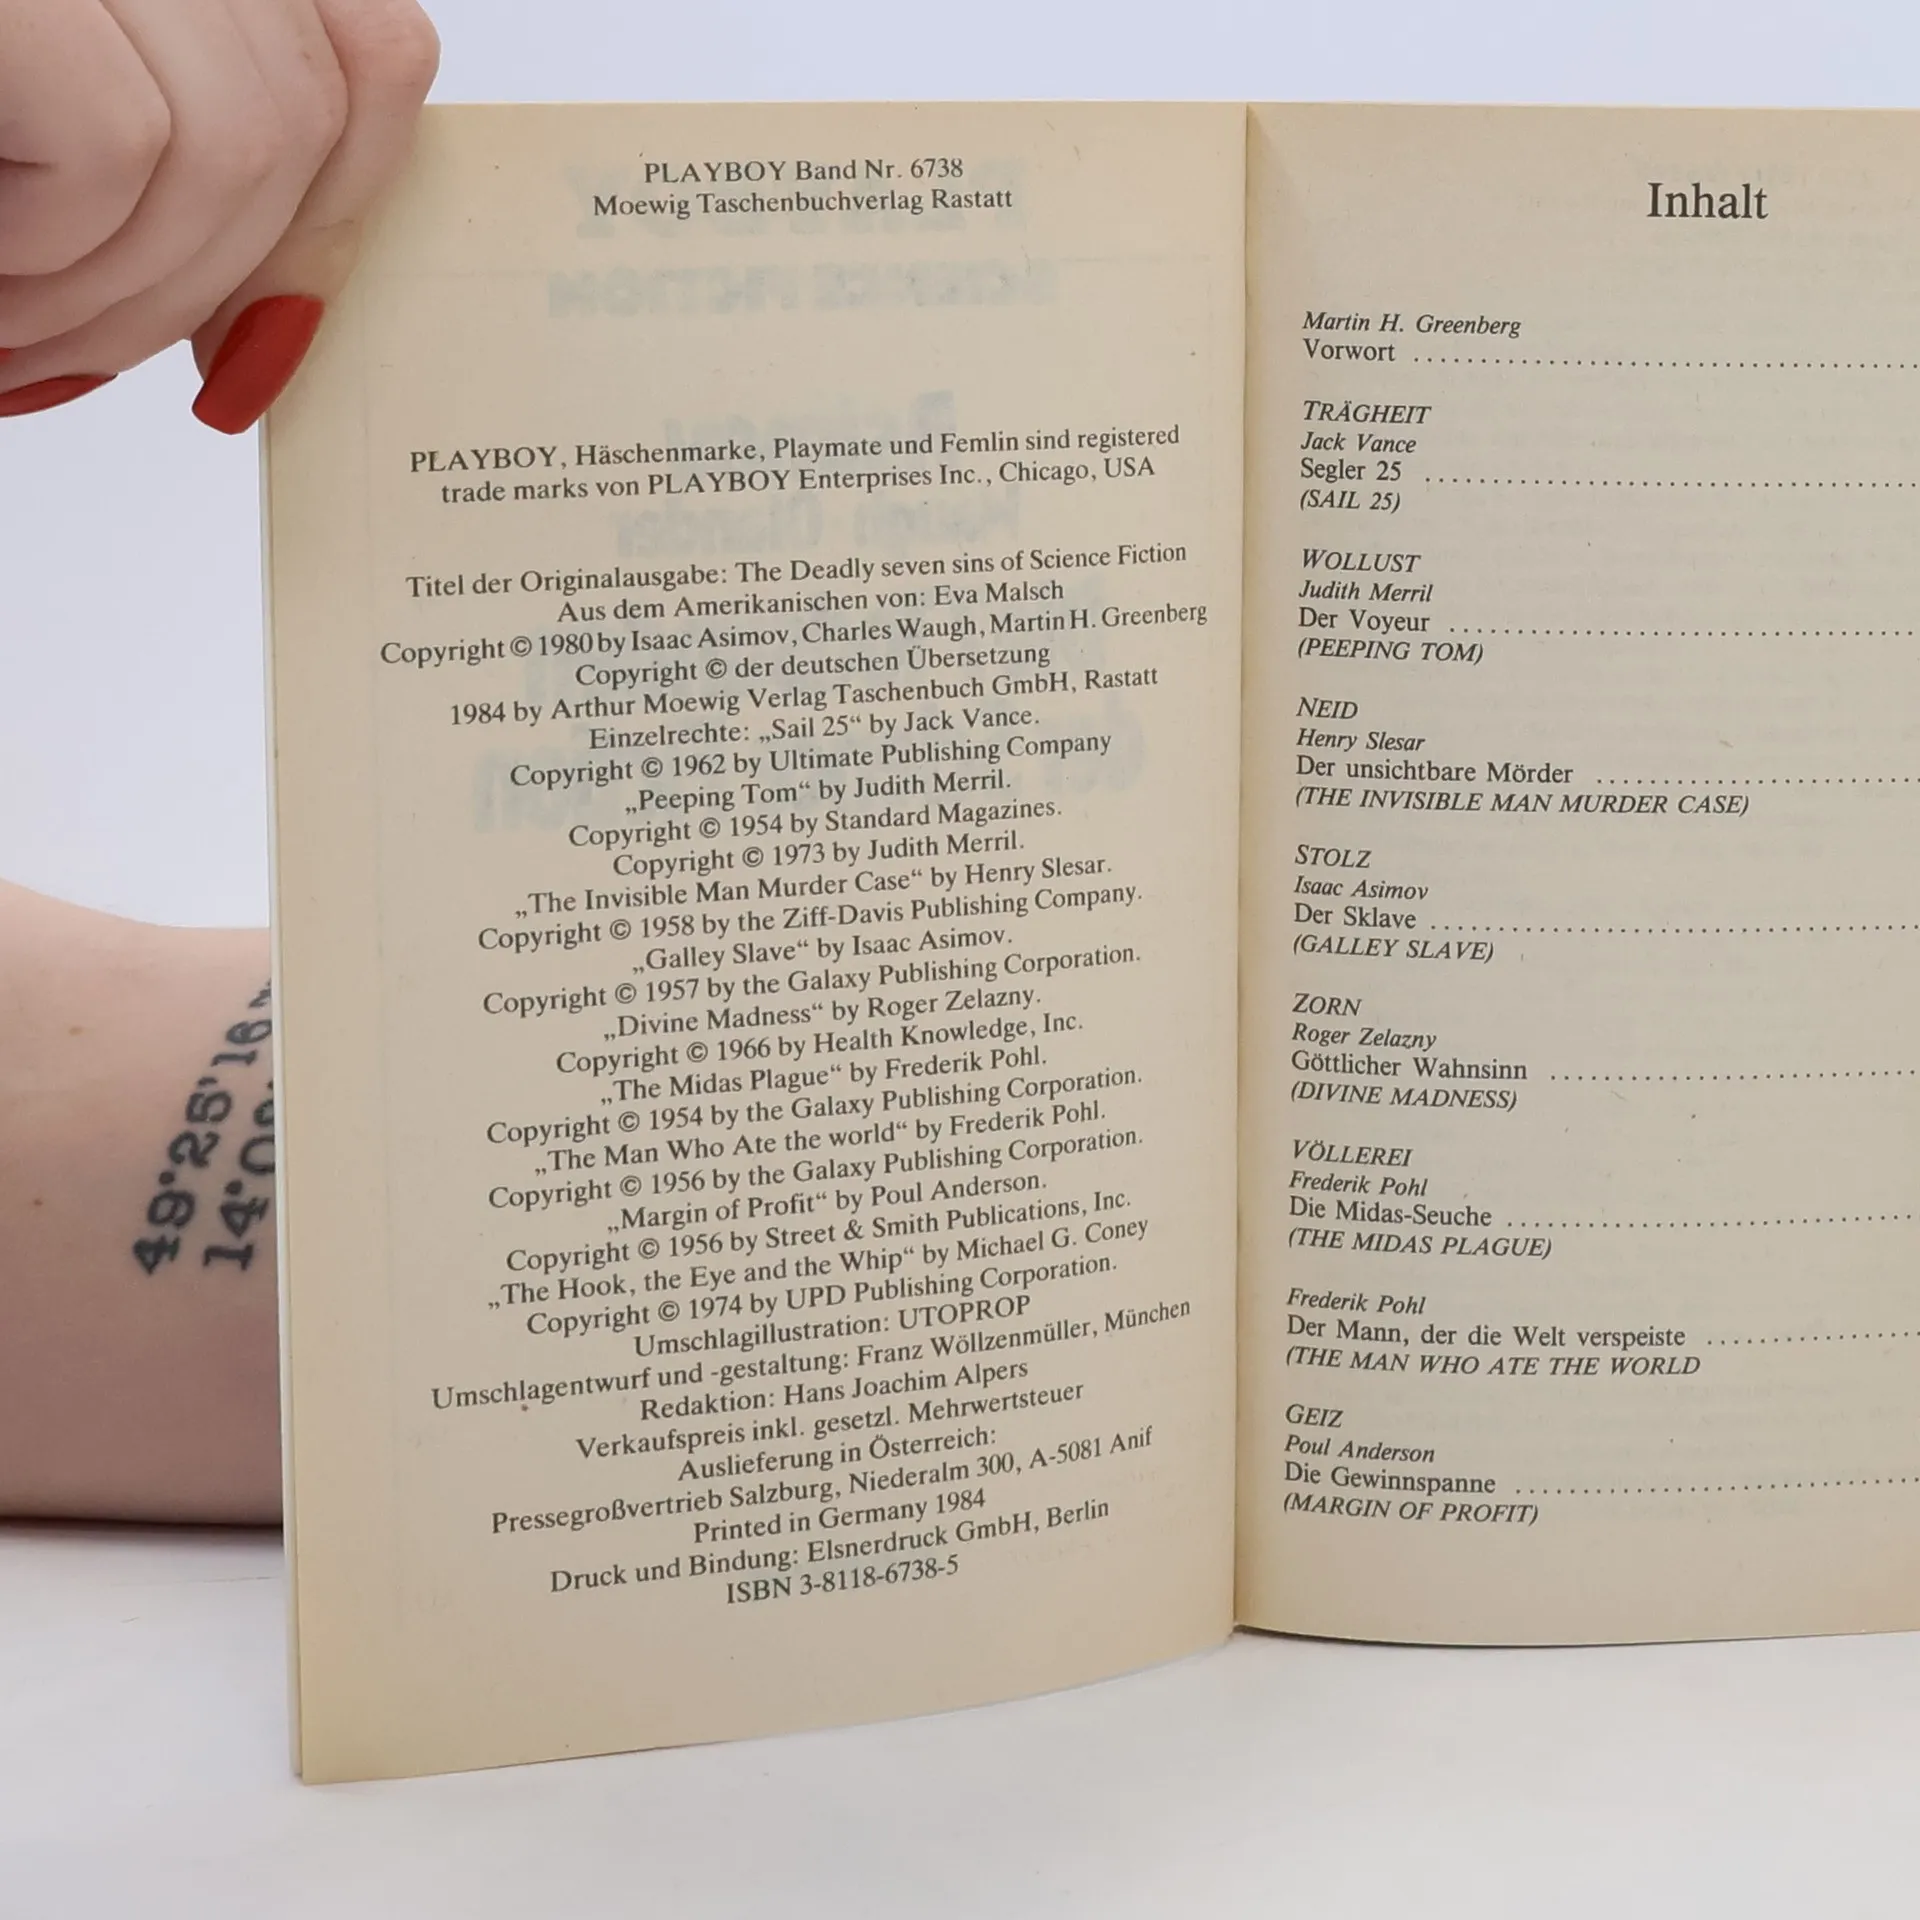 PLAYBOY Band Nr. 6738
Moewig Taschenbuchverlag Rastatt
PLAYBOY, Häschenmarke, Playmate und Femlin sind registered
trade marks von PLAYBOY Enterprises Inc., Chicago, USA
Titel der Originalausgabe: The Deadly seven sins of Science Fiction
Aus dem Amerikanischen von: Eva Malsch
Copyright © 1980 by Isaac Asimov, Charles Waugh, Martin H. Greenberg
Copyright © der deutschen Übersetzung
1984 by Arthur Moewig Verlag Taschenbuch GmbH, Rastatt
Einzelrechte: „Sail 25“ by Jack Vance.
Copyright © 1962 by Ultimate Publishing Company
„Peeping Tom“ by Judith Merril.
Copyright © 1954 by Standard Magazines.
Copyright © 1973 by Judith Merril.
„The Invisible Man Murder Case“ by Henry Slesar.
Copyright © 1958 by the Ziff-Davis Publishing Company.
„Galley Slave“ by Isaac Asimov.
Copyright © 1957 by the Galaxy Publishing Corporation.
„Divine Madness“ by Roger Zelazny.
Copyright © 1966 by Health Knowledge, Inc.
„The Midas Plague“ by Frederik Pohl.
Copyright © 1954 by the Galaxy Publishing Corporation.
„The Man Who Ate the world“ by Frederik Pohl.
Copyright © 1956 by the Galaxy Publishing Corporation.
„Margin of Profit“ by Poul Anderson.
Copyright © 1956 by Street & Smith Publications, Inc.
„The Hook, the Eye and the Whip“ by Michael G. Coney
Copyright © 1974 by UPD Publishing Corporation.
Umschlagillustration: UTOPROP
Umschlagentwurf und -gestaltung: Franz Wöllzenmüller, München
Redaktion: Hans Joachim Alpers
Verkaufspreis inkl. gesetzl. Mehrwertsteuer
Auslieferung in Österreich:
Pressegroßvertrieb Salzburg, Niederalm 300, A-5081 Anif
Printed in Germany 1984
Druck und Bindung: Elsnerdruck GmbH, Berlin
ISBN 3-8118-6738-5
Inhalt
Martin H. Greenberg
Vorwort
TRÄGHEIT
Jack Vance
Segler 25
(SAIL 25)
WOLLUST
Judith Merril
Der Voyeur
(PEEPING TOM)
NEID
Henry Slesar
Der unsichtbare Mörder
(THE INVISIBLE MAN MURDER CASE)
STOLZ
Isaac Asimov
Der Sklave
(GALLEY SLAVE)
ZORN
Roger Zelazny
Göttlicher Wahnsinn
(DIVINE MADNESS)
VÖLLEREI
Frederik Pohl
Die Midas-Seuche
(THE MIDAS PLAGUE)
Frederik Pohl
Der Mann, der die Welt verspeiste
(THE MAN WHO ATE THE WORLD
GEIZ
Poul Anderson
Die Gewinnspanne
(MARGIN OF PROFIT)
49°25'16
14°